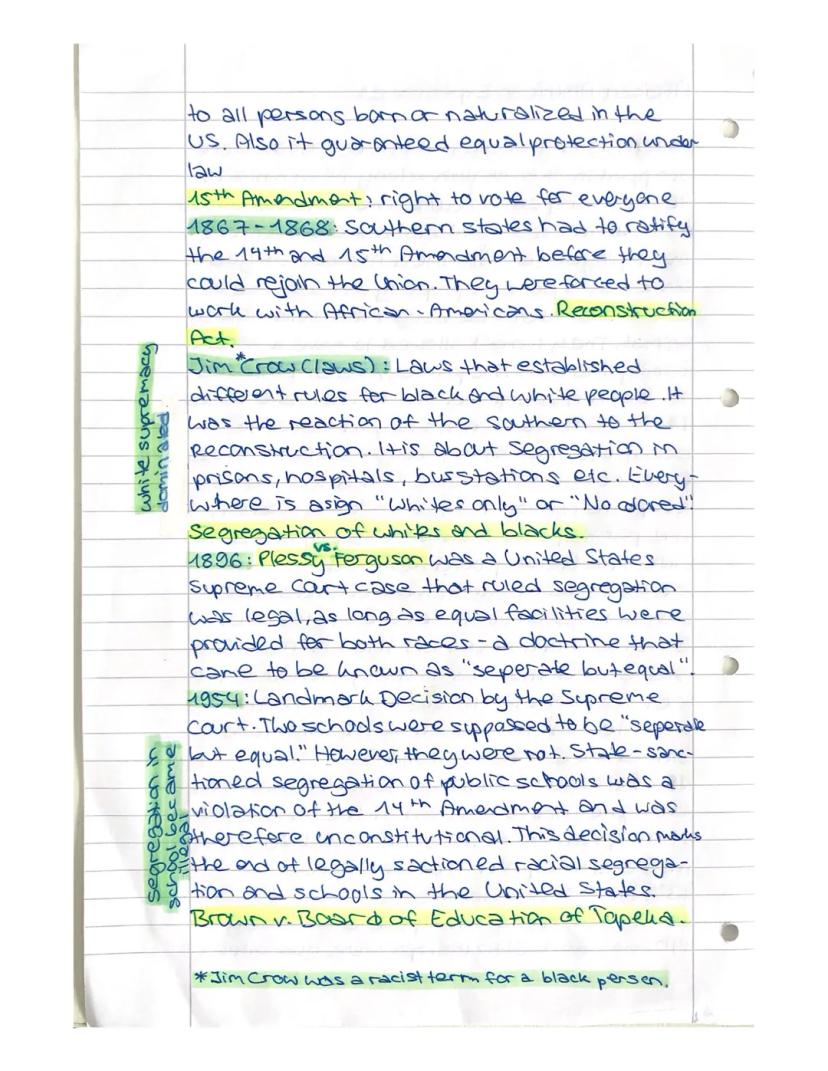 to all persons born or naturalized in the
US. Also it guaranteed equal protection under
law
15th Amendment: right to vote for everyone
1867-1868: Southern states had to ratify
the 14th and 15th Amendment before they
could rejoin the Union. They were forced to
work with African-Americans. Reconstruction
Act.
Jim Crow* (laws): Laws that established
different rules for black and white people. It
was the reaction of the southern to the
Reconstruction. It is about segregation in
prisons, hospitals, busstations etc. Every-
where is asign "Whites only" or "No colored"!
Segregation of whites and blacks.
1896: Plessy vs. Ferguson was a United States
Supreme Court case that ruled segregation
was legal, as long as equal facilities were
provided for both races - a doctrine that
came to be known as "seperate but equal".
1954: Landmark Decision by the Supreme
Court. Two schools were suppossed to be "seperate
but equal." However, they were not. State-sanc-
tioned segregation of public schools was a
violation of the 14th Amendment and was
therefore unconstitutional. This decision marks
the end of legally sactioned racial segrega-
tion and schools in the United States.
Brown v. Board of Education of Topeka.
*Jim Crow was a racist term for a black person.
white supremacy
dominated
segregation in
school became
illegal